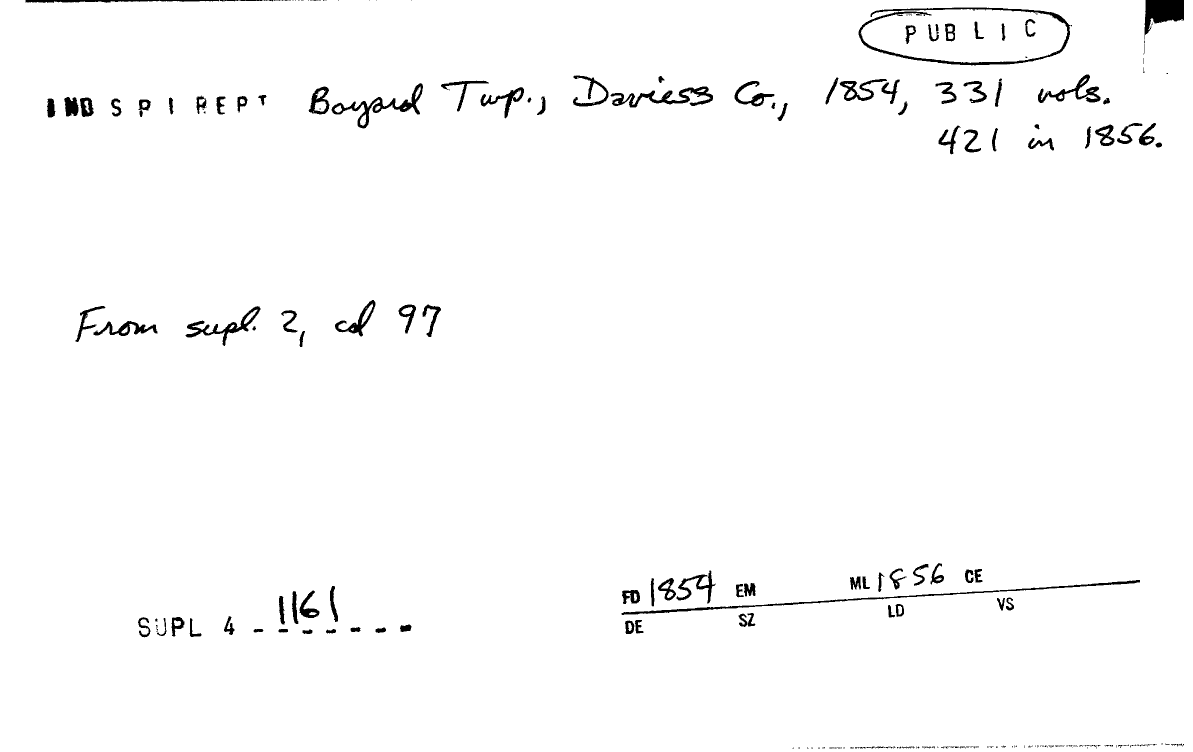 PUBLIC
IND SPI REPT Bogard Twp., Daviess Co., 1854, 331 vols.
421 in 1856.
From supl. 2, cd 97
SUPL 4 - 1161
FD 1854 EM ML 1856 CE
DE SZ LD VS